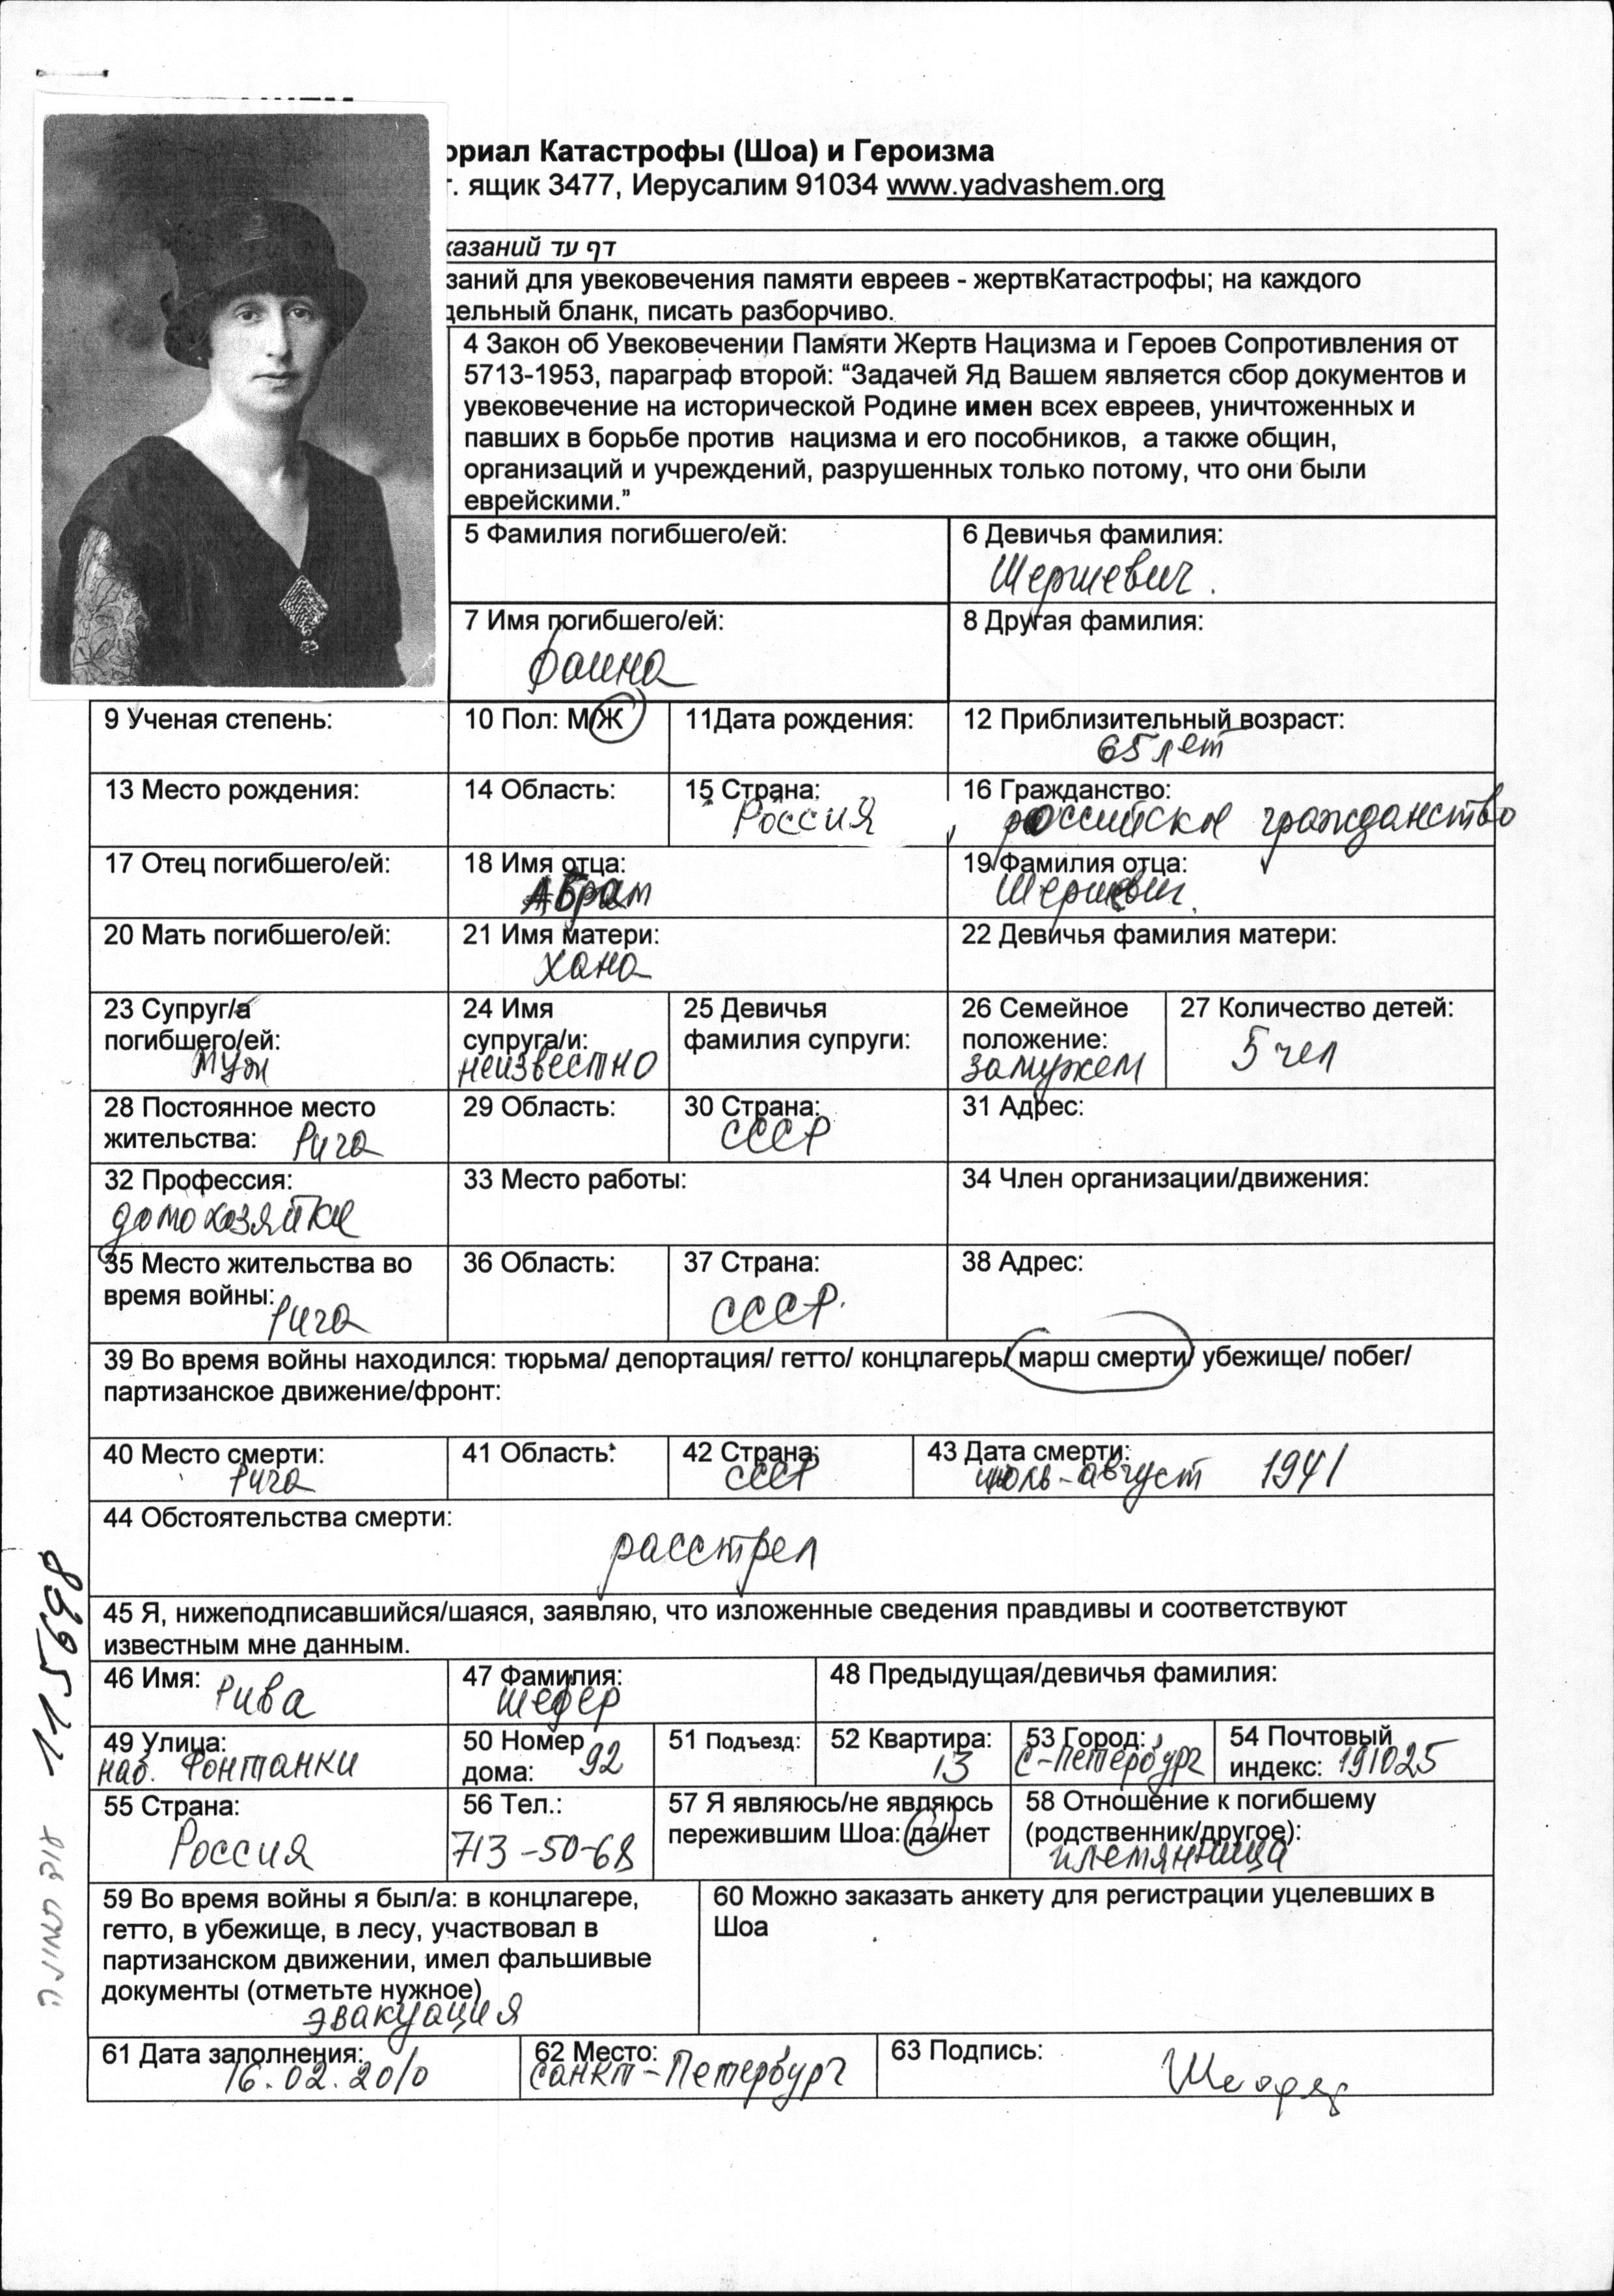 ориал Катастрофы (Шоа) и Героизма
т. ящик 3477, Иерусалим 91034 www.yadvashem.org
казаний דף עד
заний для увековечения памяти евреев - жертвКатастрофы; на каждого
дельный бланк, писать разборчиво.
4 Закон об Увековечении Памяти Жертв Нацизма и Героев Сопротивления от
5713-1953, параграф второй: “Задачей Яд Вашем является сбор документов и
увековечение на исторической Родине имен всех евреев, уничтоженных и
павших в борьбе против нацизма и его пособников, а также общин,
организаций и учреждений, разрушенных только потому, что они были
еврейскими.”
5 Фамилия погибшего/ей:
6 Девичья фамилия:
Шершевич.
7 Имя погибшего/ей:
Фаина
8 Другая фамилия:
9 Ученая степень:
10 Пол: М/Ж
11Дата рождения:
12 Приблизительный возраст:
65 лет
13 Место рождения:
14 Область:
15 Страна:
Россия
16 Гражданство:
российское гражданство
17 Отец погибшего/ей:
18 Имя отца:
Абрам
19 Фамилия отца:
Шершевич.
20 Мать погибшего/ей:
21 Имя матери:
Хана
22 Девичья фамилия матери:
23 Супруг/а
погибшего/ей:
муж
24 Имя
супруга/и:
неизвестно
25 Девичья
фамилия супруги:
26 Семейное
положение:
замужем
27 Количество детей:
5 чел
28 Постоянное место
жительства: Рига
29 Область:
30 Страна:
СССР
31 Адрес:
32 Профессия:
домохозяйка
33 Место работы:
34 Член организации/движения:
35 Место жительства во
время войны: Рига
36 Область:
37 Страна:
СССР.
38 Адрес:
39 Во время войны находился: тюрьма/ депортация/ гетто/ концлагерь/ марш смерти/ убежище/ побег/
партизанское движение/фронт:
40 Место смерти:
Рига
41 Область:
42 Страна:
СССР
43 Дата смерти:
июль-август 1941
44 Обстоятельства смерти:
расстрел
45 Я, нижеподписавшийся/шаяся, заявляю, что изложенные сведения правдивы и соответствуют
известным мне данным.
46 Имя: Рива
47 Фамилия:
Шефер
48 Предыдущая/девичья фамилия:
49 Улица:
наб. Фонтанки
50 Номер
дома: 92
51 Подъезд:
52 Квартира:
13
53 Город:
С-Петербург
54 Почтовый
индекс: 191025
55 Страна:
Россия
56 Тел.:
713-50-68
57 Я являюсь/не являюсь
пережившим Шоа: да/нет
58 Отношение к погибшему
(родственник/другое):
племянница
59 Во время войны я был/а: в концлагере,
гетто, в убежище, в лесу, участвовал в
партизанском движении, имел фальшивые
документы (отметьте нужное)
эвакуация
60 Можно заказать анкету для регистрации уцелевших в
Шоа
61 Дата заполнения:
16.02.2010
62 Место:
Санкт-Петербург
63 Подпись:
115698